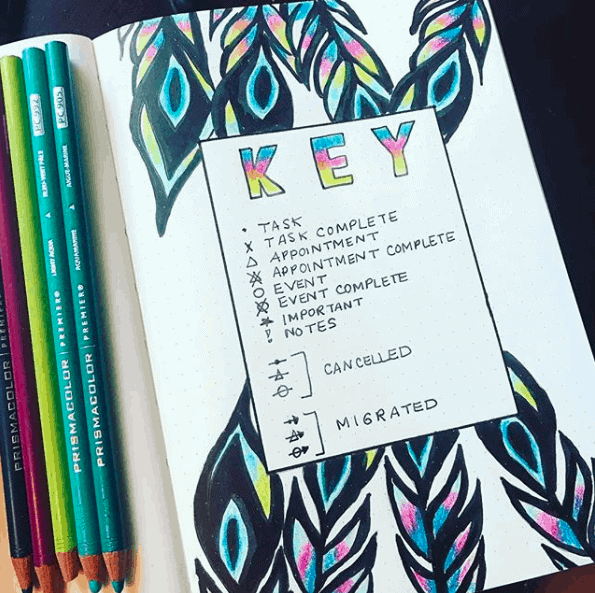 KEY
• TASK
X TASK COMPLETE
△ APPOINTMENT
APPOINTMENT COMPLETE
○ EVENT
EVENT COMPLETE
* IMPORTANT
! NOTES
CANCELLED
MIGRATED
PRISMACOLOR PREMIER
PRISMACOLOR
PRISMACOLOR | PREMIER® LIGHT AQUA PC 992
PRISMACOLOR | PREMIER® AQUAMARINE AIGUE-MARINE PC 905